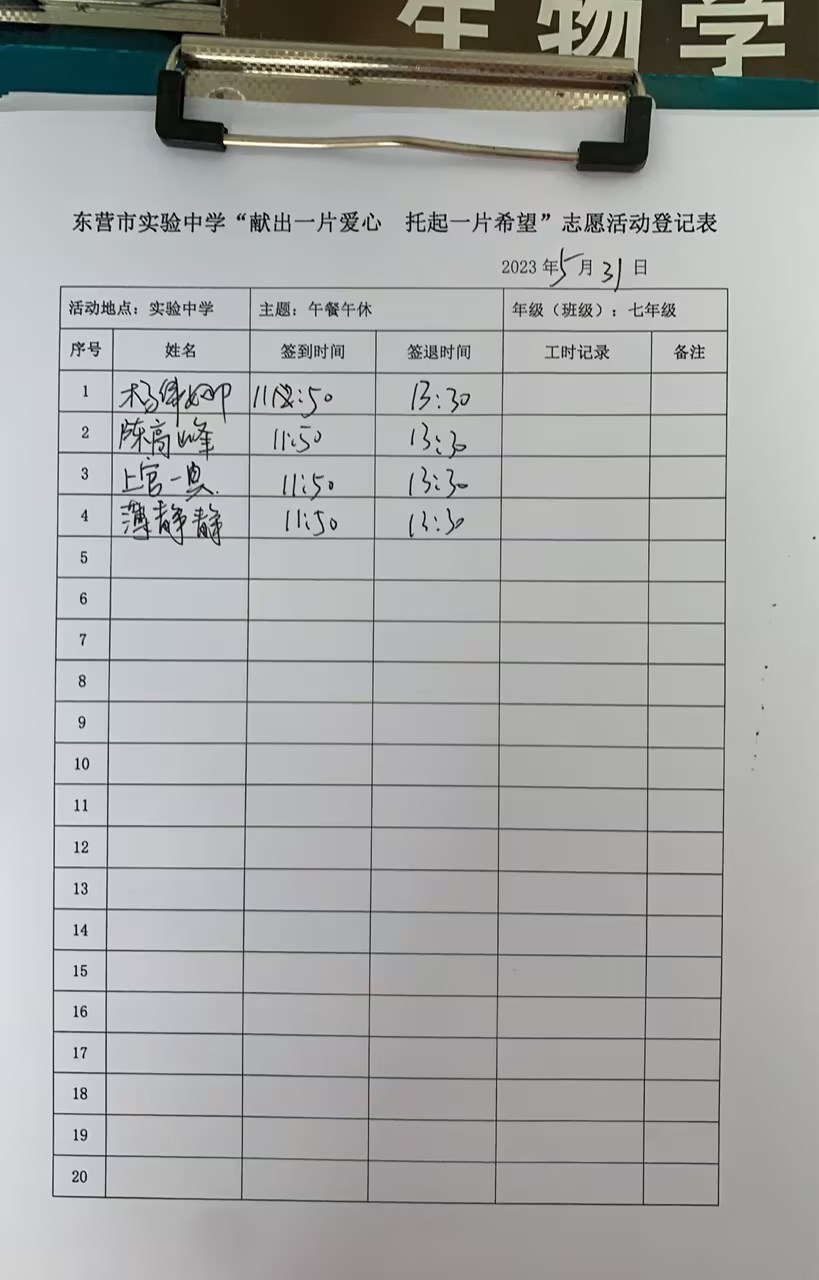 生物学
东营市实验中学“献出一片爱心 托起一片希望”志愿活动登记表
2023年5月31日
活动地点：实验中学 主题：午餐午休 年级（班级）：七年级
序号 姓名 签到时间 签退时间 工时记录 备注
1 杨 :50 13:30
2 陈高峰 11:50 13:30
3 上官一 11:50 13:30
4 薄静静 11:50 13:30
5
6
7
8
9
10
11
12
13
14
15
16
17
18
19
20